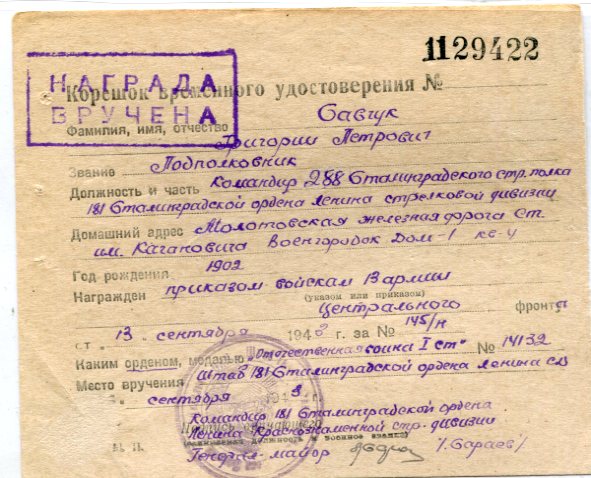 1129422
НАГРАДА
ВРУЧЕНА
Корешок временного удостоверения №
Савчук
Фамилия, имя, отчество
Григорий Петрович
Звание Подполковник
Должность и часть Командир 288 Сталинградского стр. полка
181 Сталинградской ордена Ленина стрелковой дивизии
Домашний адрес Молотовская железная дорога Ст.
им. Кагановича Военгородок Дом-1 кв-4
Год рождения 1902
Награжден приказом войскам 13 армии
(указом или приказом)
Центрального фронта
от 13 сентября 1943 г. за № 145/н
Каким орденом, медалью „Отечественная война I ст" № 14132
Место вручения Штаб 181 Сталинградской ордена Ленина сд
сентября 194 3 г.
Командир 181 Сталинградской ордена
Подпись вручающего
Ленина Краснознаменной стр. дивизии
(с указанием должности и военное звание)
М. П. Генерал-майор /Сараев/